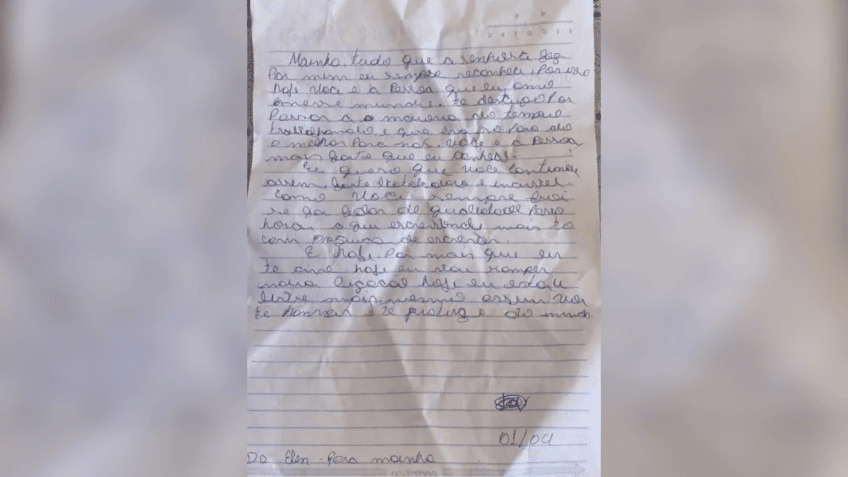 Mainha, tudo que a senhora fez
Por mim eu sempre reconheci, Por isso
hoje Voce e a Pessoa que eu amo
nesse mundo. te desculpo Por
Passar a maioria do tempo
trabalhando e que era so Para da
o melhor Para nós. Voce e a Pessoa
mais forte que eu conheci.
Eu quero que Voce continue
assim, forte trabalhadora e incrivel
como Voce sempre foi
de qualidade Para
aqui escrevendo mais to
com Preguiça de escrever.
E hoje, Por mais que eu
te amo hoje eu vou romper
nossa ligacao hoje eu estou
livre mais mesmo assim vou
te e te protege do mundo
01/04
Do Elen - Para mainha